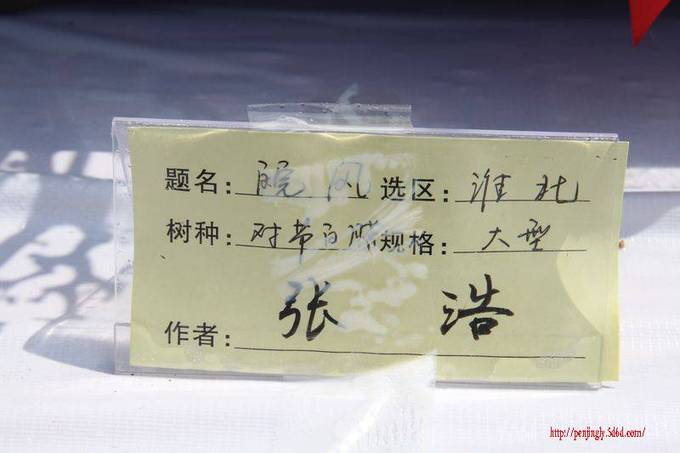 题名：皖风 选区：淮北
树种：对节白腊 规格：大型
作者：张浩
http://penjingly.5d6d.com/